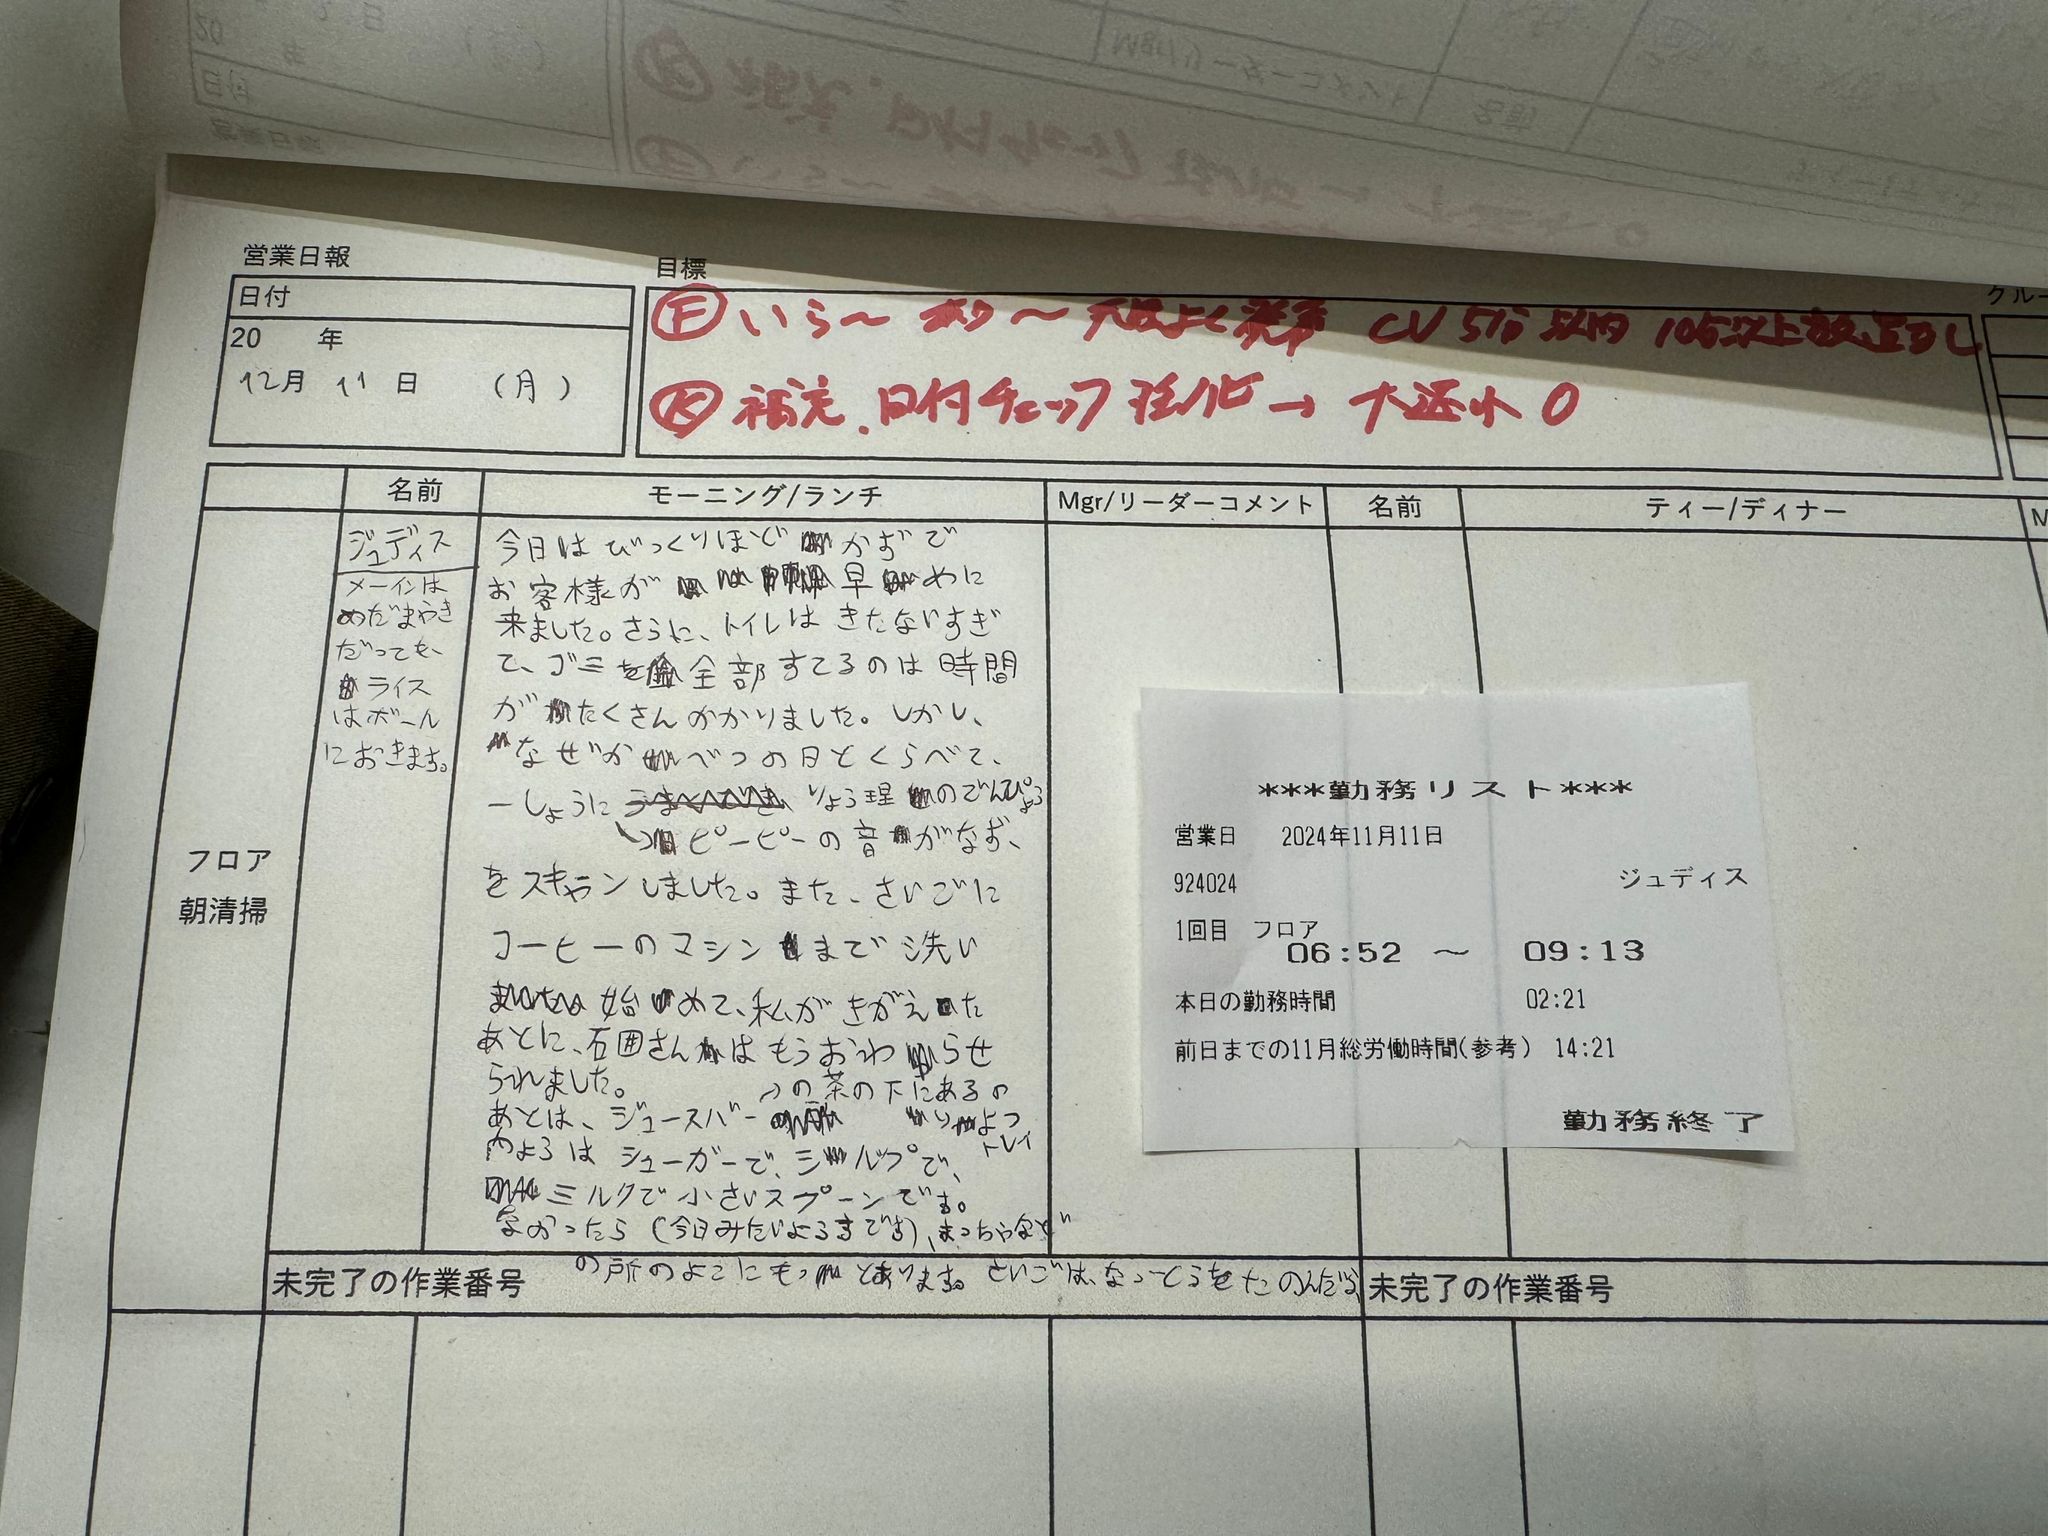 営業日報
日付
20 年
12月 11日 (月)
目標
Ⓕ いら〜 あり〜 元気よく CV 5分以内 10分以上
Ⓚ 補充、日付チェック → 大返小 0
名前
モーニング/ランチ
Mgr/リーダーコメント
名前
ティー/ディナー
フロア
朝清掃
ジュディス
メインは
めだまやき
だっても、
ライス
はボール
におきます。
今日はびっくりほど かずで
お客様が 早めに
来ました。さらに、トイレは きたないすぎ
て、ゴミを全部すてるのは時間
がたくさんかかりました。しかし、
なぜか べつの日とくらべて、
一しょうに りょう理のでんぴょう
ピーピーの音がなず、
をスキャンしました。また、さいごに
コーヒーのマシンまで洗い
始めて、私がきがえた
あとに、石田さんはもうおわらせ
られました。
の茶の下にあるの
あとは、ジュースバー
内ようは シューガーで、シルプで、
トレイ
ミルクで小さいスプーンです。
なかったら (今日みたいようすです)、まっちゃなど
の所のよこにもっとあります。さいごは、なっとうをたのんだら
未完了の作業番号
未完了の作業番号
***勤務リスト***
営業日 2024年11月11日
924024 ジュディス
1回目 フロア
06:52 〜 09:13
本日の勤務時間 02:21
前日までの11月総労働時間(参考) 14:21
勤務終了